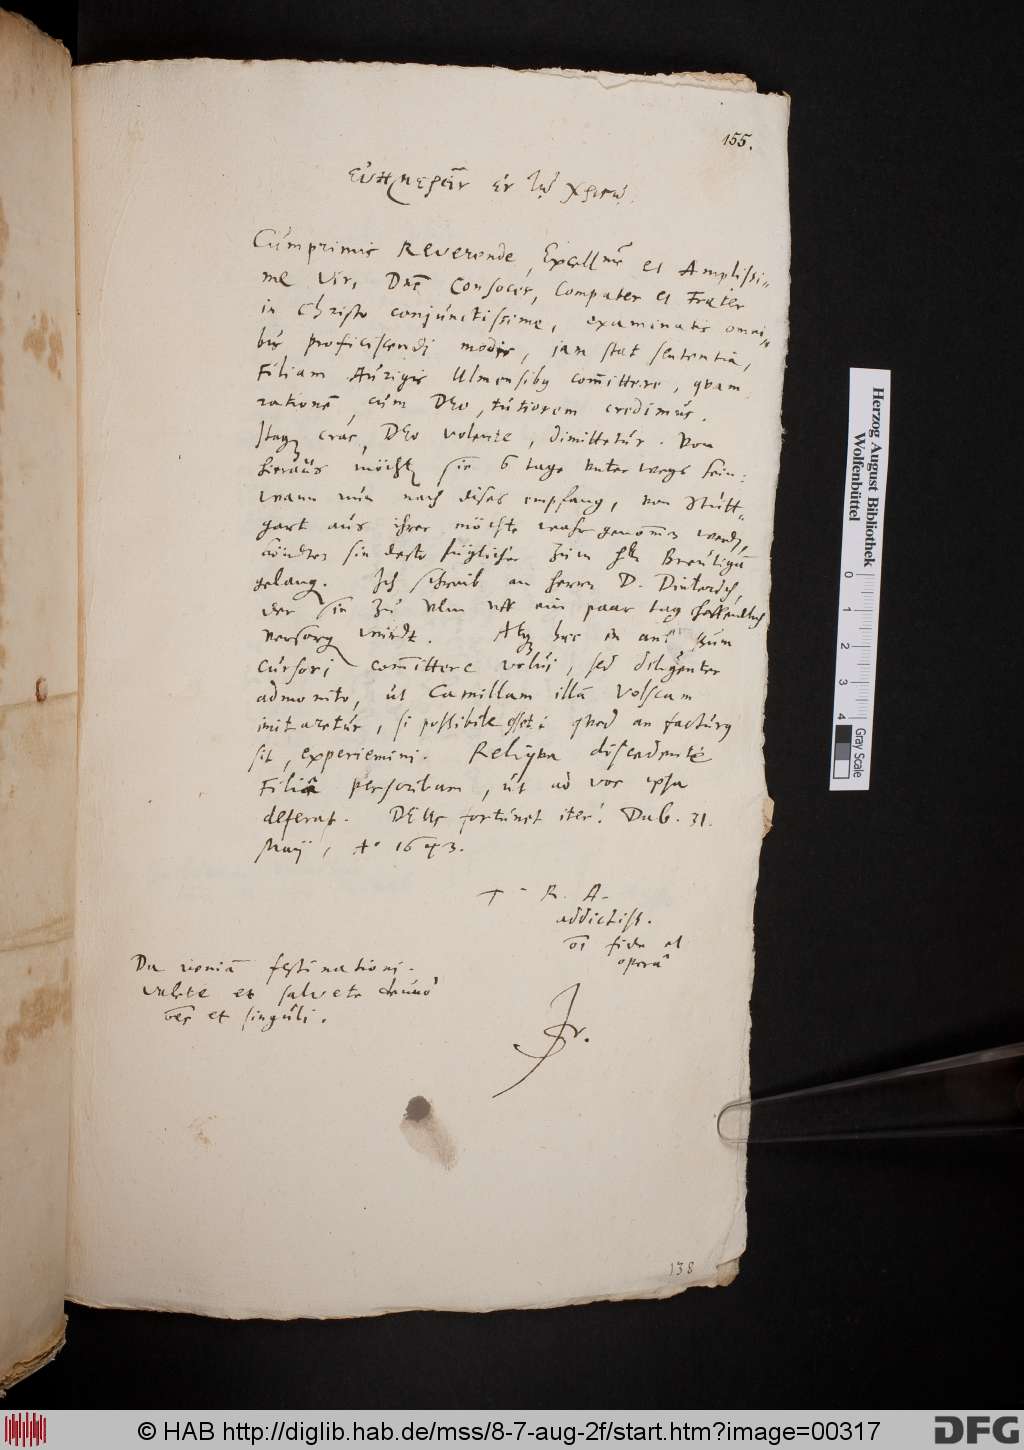 155.
εὐημερίαν ἐν τῷ Χριστῷ.
Cumprimis Reverende, Excellme et Amplissi-
me Vir, Dne Consocer, Compater et Frater
in Christo conjunctissime, examinatis omni-
bus proficiscendi modis, jam stat sententia,
Filiam Aurigis Ulmensibus comittere, quam
rationem, cum Deo, tutiorem credimus.
Itaq cras, Deo volente, dimittetur. Von
hieraus möcht sie 6 tage unter wegs sein:
wann nun nach dises empfang, von Stutt-
gart aus ihrer möchte wahr genommen werdn,
köndte sie desto füglicher zum hn Breutigam
gelang. Ich schreib an herrn D. Dieterich,
der sie zu Ulm uff ein paar tag hoffendlich
versorg würdt. Atq hæc in
cursori comittere volui, sed diligenter
admonito, ut Camillam illam Volscam
imitaretur, si possibile esset: quod an facturus
sit, experiemini. Reliqua discedente
Filiâ perscribam, ut ad vos ipsa
deferat. DEUS fortunet iter! Dab. 31.
Maij, Ao 1643.
R. A.
addictiss.
oi fide et
operâ
Da veniam festinationi.
Valete et salvete denuo
oes et singuli.
138
Herzog August Bibliothek
Wolfenbüttel
0 1 2 3 4
Gray Scale
© HAB http://diglib.hab.de/mss/8-7-aug-2f/start.htm?image=00317
DFG